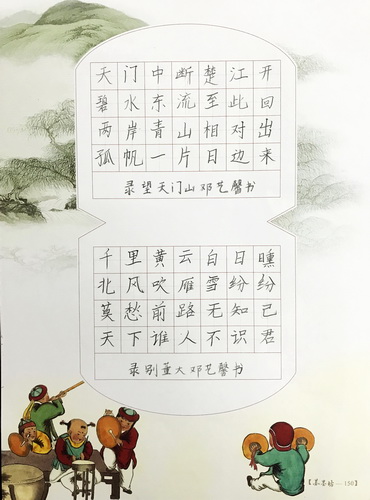 天门中断楚江开
碧水东流至此回
两岸青山相对出
孤帆一片日边来
录望天门山邓艺馨书
千里黄云白日曛
北风吹雁雪纷纷
莫愁前路无知己
天下谁人不识君
录别董大邓艺馨书